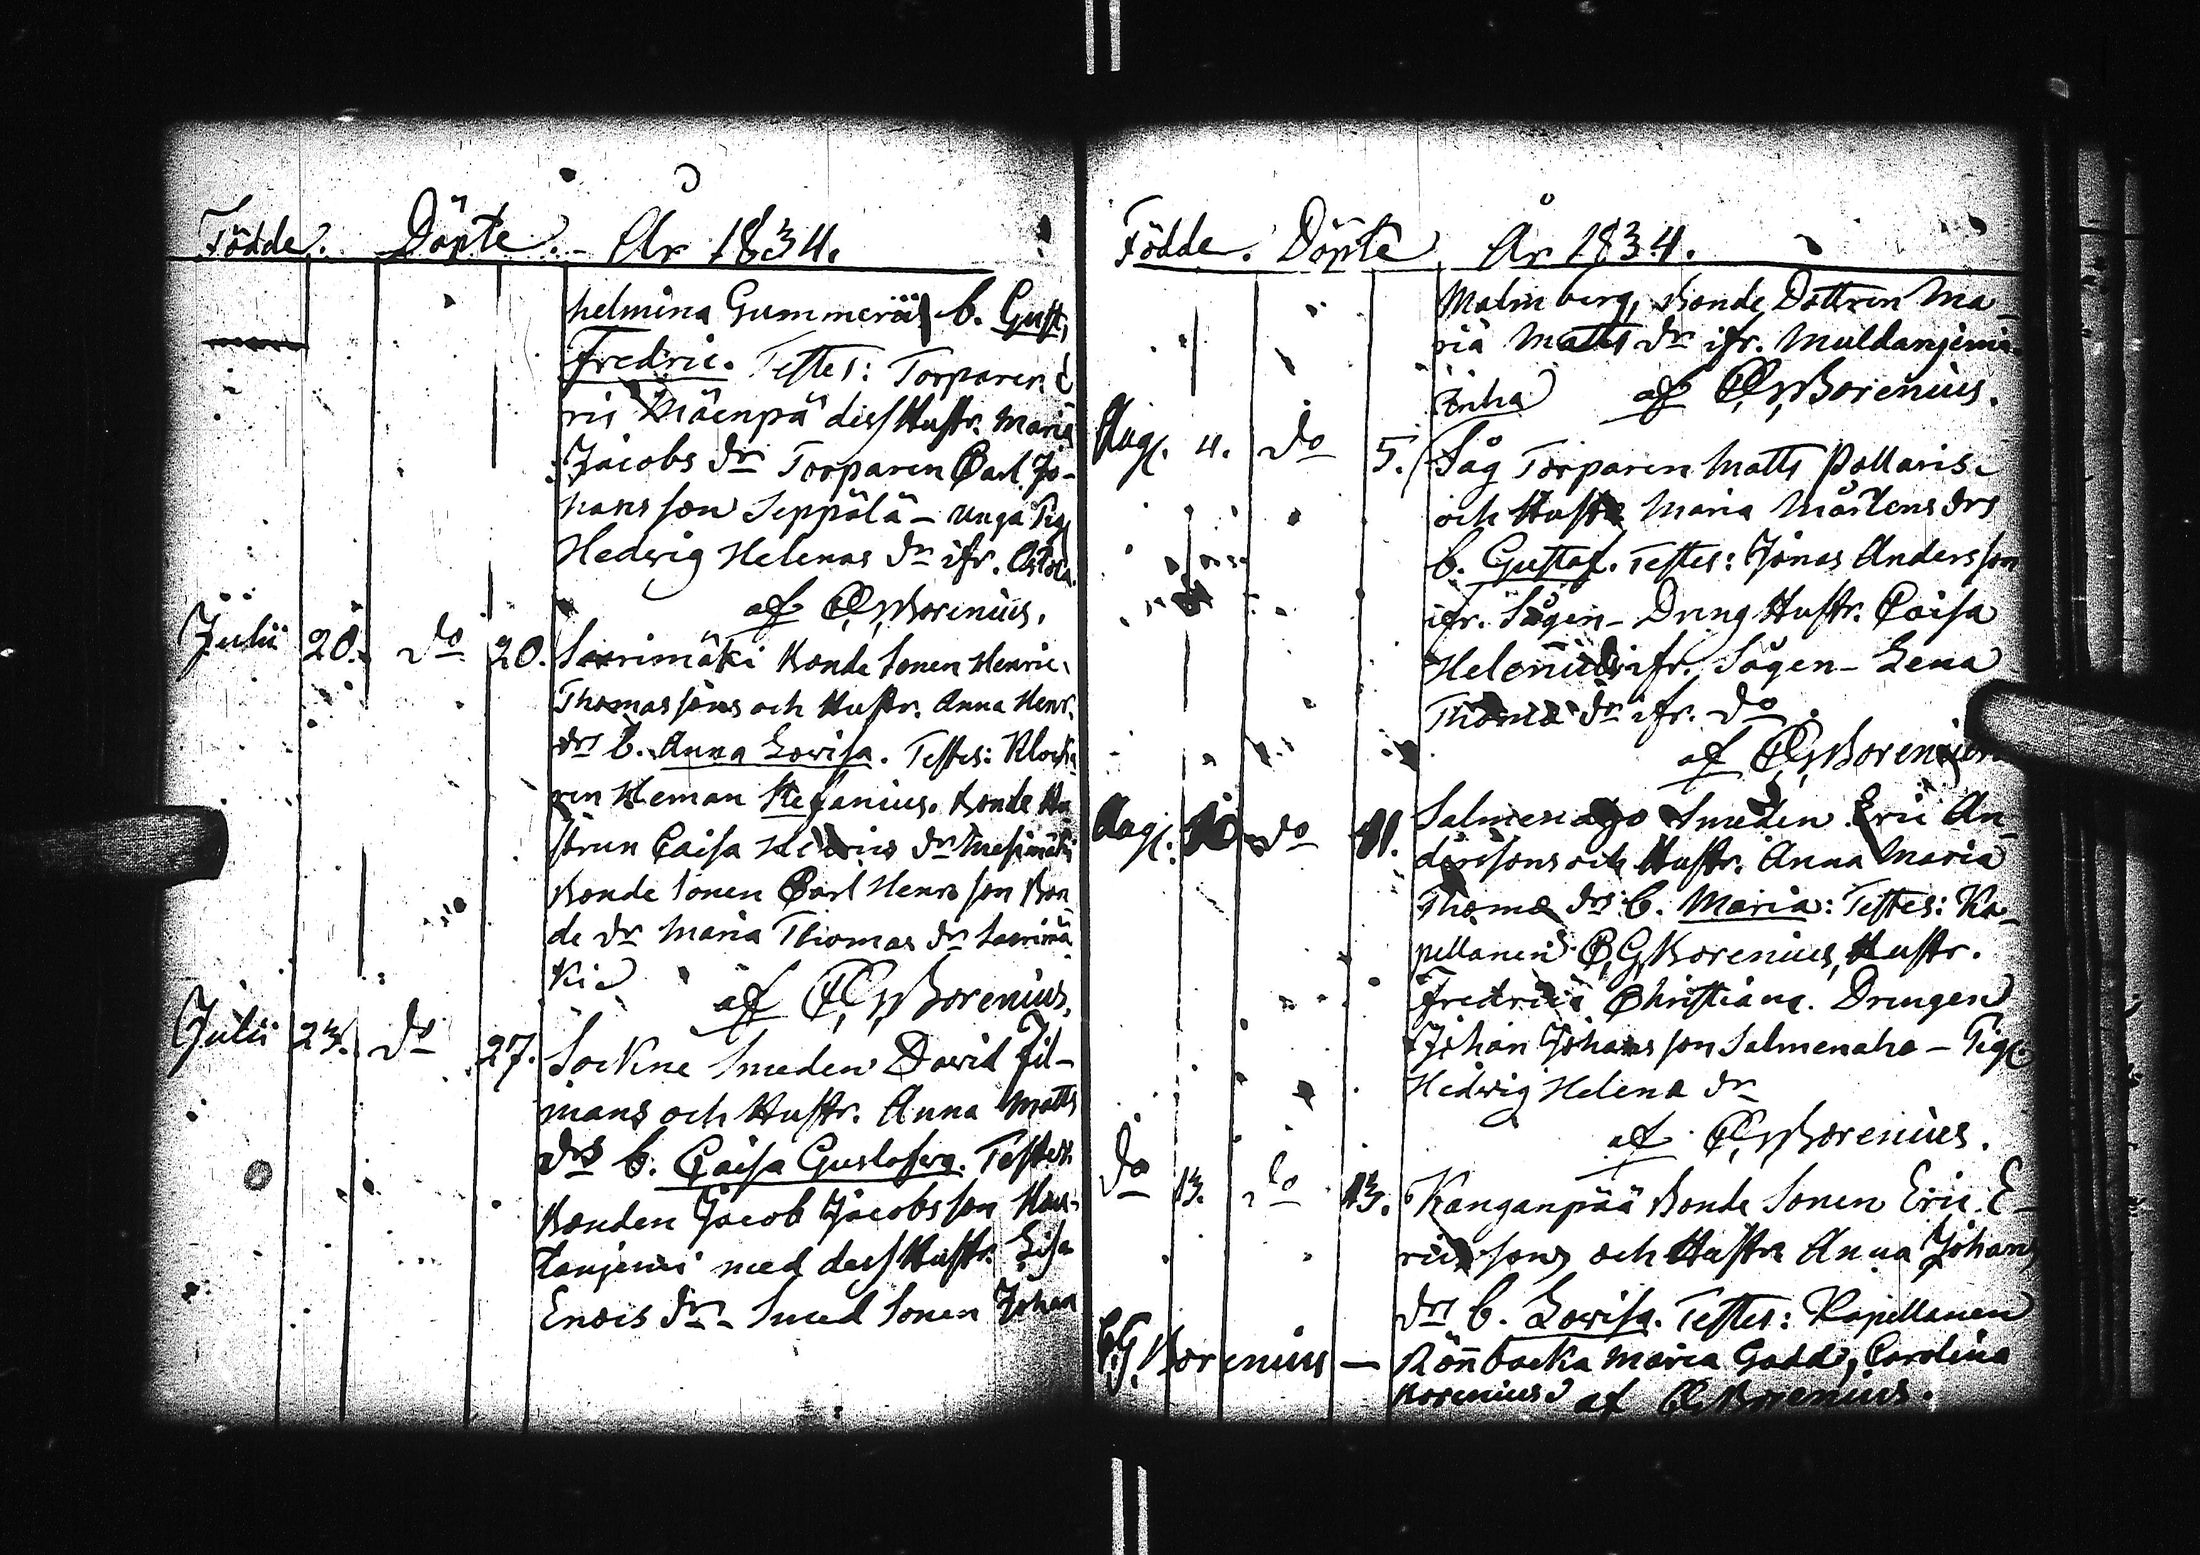 Födde. Döpte. År 1834.
helmina Gummerä b. Gust.
Fredric. Testes: Torparen E
ric Mäenpä dess Hustr. Maria
Jacobs dr Torparen Carl Jo-
hansson Seppälä - unga Pig
Hedvig Helenas dr ifr.
af C,G,Borenius.
Julii 20. do 20. Saarimäki Bonde Sonen Henric
Thomassons och Hustr. Anna Henr.
drs b. Anna Lovisa. Testes: Klocka
ren Heman Stefanius. Bonde Hu
strun Caisa dr Mesimäki
Bonde Sonen Carl Henrsson Bon
de dr Maria Thomas dr Saarimä
ki af C,G,Borenius.
Julii 23. do 27. Sockne Smeden David Fil-
mans och Hustr. Anna Matts
drs b. Caisa Gustafva. Testes:
Bonden Jacob Jacobsson
med dess Hustr. Lisa
dr - Smed Sonen Johan
Födde. Döpte År 1834.
Malmberg, Bonde Dottren Ma-
ria Matts dr ifr. Muldanjemi
Inha af C,G,Borenius.
Aug. 4. do 5. Såg Torparen Matts Pollaris
och Hustr Maria Mårtens drs
b. Gustaf. Testes: Jonas Andersson
ifr. Sågen - Dreng Hustr. Caisa
ifr. Sågen - Lena
Thomæ dr ifr. do
af C,G,Borenius
Aug. 10 do 11. Salmen Smeden Eric An-
derssons och Hustr. Anna Maria
Thomæ drs b. Maria: Testes: Ka-
pellanen C,G,Borenius, Hustr.
Fredrica Christiana. Drengen
Johan Johansson Salmenaho - Pig.
Hedvig Helena dr
af C,G,Borenius.
do 13. do 13. Kanganpää Bonde Sonen Eric E-
ricssons och Hustr Anna Johans
drs b. Lovisa. Testes: Kapellanen
C,G,Borenius - Rönnbacka Maria Gadd, Carolina
Borenius af C,G,Borenius.